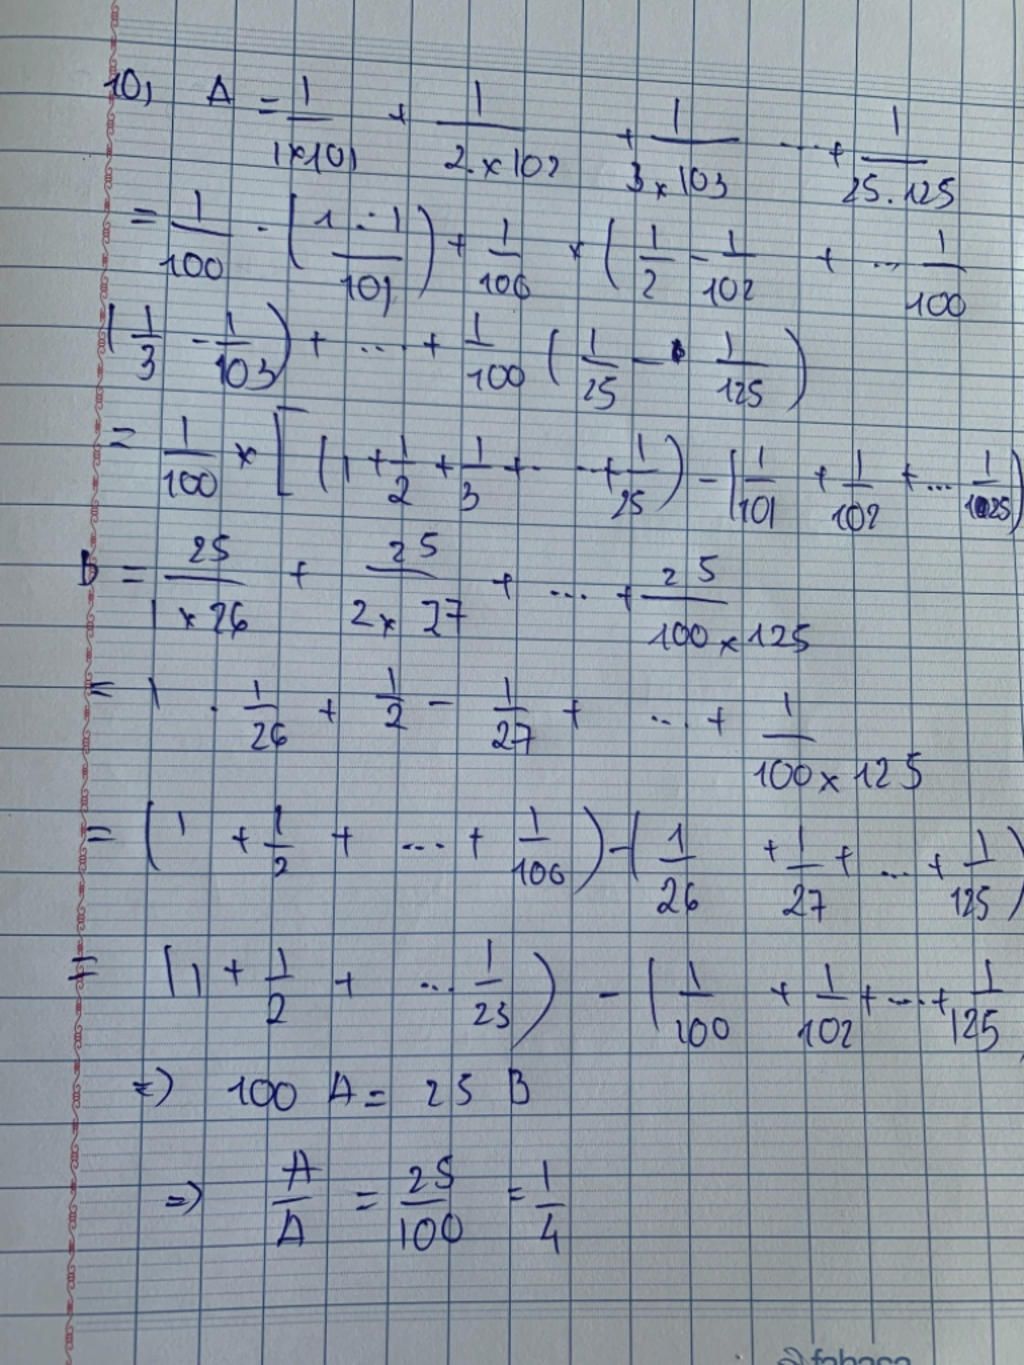 10, A = 1/(1×101) + 1/(2×102) + 1/(3×103) ... + 1/(25.125)
= 1/100 - ((1 - 1)/101) + 1/100 × (1/2 - 1/102 + ... 1/100
(1/3 - 1/103) + ... + 1/100 (1/25 - 1/125)
= 1/100 × [ (1 + 1/2 + 1/3 + ... + 1/25) - (1/101 + 1/102 + ... 1/125)
B = 25/(1×26) + 25/(2×27) + ... + 25/(100×125)
= 1 . 1/26 + 1/2 - 1/27 + ... + 1/(100×125)
= (1 + 1/2 + ... + 1/100) - (1/26 + 1/27 + ... + 1/125)
= (1 + 1/2 + ... 1/25) - (1/100 + 1/102 + ... + 1/125
=> 100 A = 25 B
=> A/A = 25/100 = 1/4